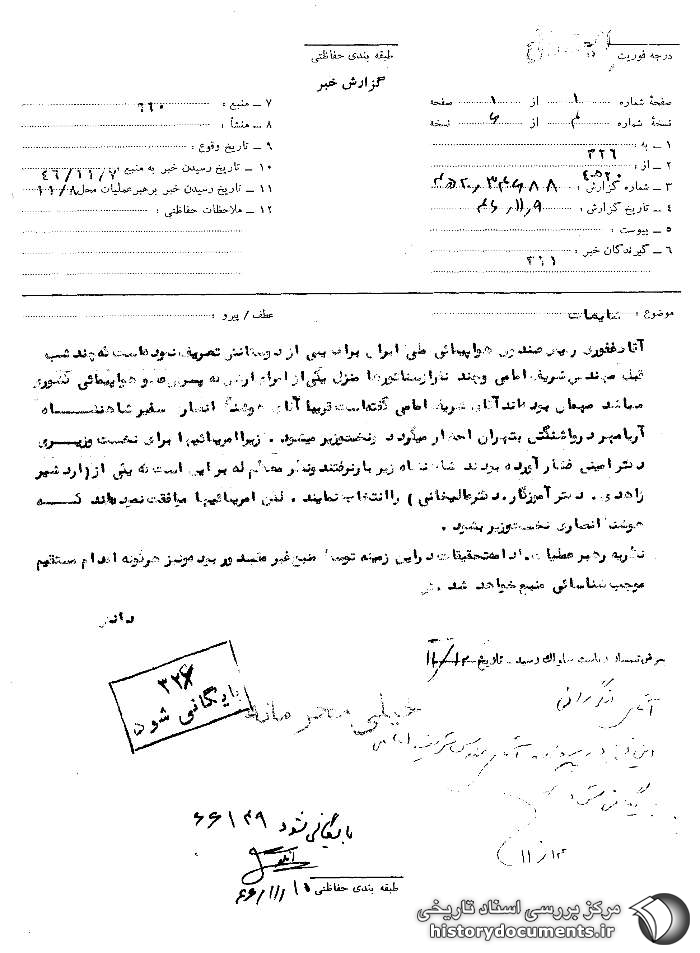 درجه فوریت
طبقه بندی حفاظتی
گزارش خبر
صفحهٔ شماره ۱ از ۱ صفحه
نسخهٔ شماره ۲ از ۴ نسخه
۱ – به ۳۲۶
۲ – از :
۳ – شماره گزارش :
۴ – تاریخ گزارش : ۴۶٫۱۱٫۹
۵ – پیوست :
۶ – گیرندگان خبر :
۷ – منبع : ۶۶۰
۸ – منشأ :
۹ – تاریخ وقوع :
۱۰ – تاریخ رسیدن خبر به منبع : ۴۶/۱۱/۷
۱۱ – تاریخ رسیدن خبر برهبرعملیات محل ۱۱/۸
۱۲ – ملاحظات حفاظتی :
موضوع : شایعات
عطف / پیرو :
آقای غفوری رییس صندوق هواپیمائی ملی ایران برای یکی از دوستانش تعریف نموده است که چند شب
قبل مهندس شریف امامی و چند نفر از سناتورها منزل یکی از امراء ارتش که پسرش هم در هواپیمائی کشوری
میباشد میهمان بوده اند آقای شریف امامی گفته است قریبا آقای هوشنگ انصاری سفیر شاهنشاه
آریامهر در واشنگتن بتهران احضار میگردد و نخست وزیر میشود . زیرا امریکائیها برای نخست وزیری
دکتر امینی فشار آورده بودند شاهنشاه زیر بار نرفتند و نظر معظم له بر این است که یکی از (اردشیر
زاهدی . دکتر آموزگار . دکتر عالیخانی ) را انتخاب نمایند . لکن امریکائیها موافقت نموده اند که
هوشنگ انصاری نخست وزیر بشود .
نظریه رهبر عملیات . ادامه تحقیقات در این زمینه توسط منبع غیر مقدور بوده و نیز هرگونه اقدام مستقیم
موجب شناسائی منبع خواهد شد .
بعرض تیمسار ریاست ساواک رسید . تاریخ ۱۱/۱۲
۳۲۶
بایگانی شود
خیلی محرمانه
آقای
۱۱/۱۲
بایگانی شود ۶۶۱۴۹
۴۶/۱۱/۱۵
طبقه بندی حفاظتی
مرکز بررسی اسناد تاریخی
historydocuments.ir